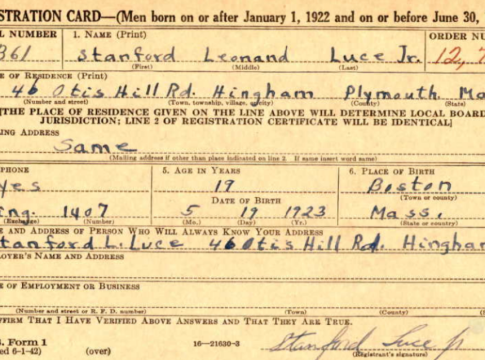 ISTRATION CARD—(Men born on or after January 1, 1922 and on or before June 30,
L NUMBER 1. NAME (Print) ORDER NU
361 Stanford Leonard Luce Jr. 12,
(First) (Middle) (Last)
E OF RESIDENCE (Print)
46 Otis Hill Rd. Hingham Plymouth Ma
(Number and street) (Town, township, village, or city) (County) (State)
[THE PLACE OF RESIDENCE GIVEN ON THE LINE ABOVE WILL DETERMINE LOCAL BOARD
JURISDICTION; LINE 2 OF REGISTRATION CERTIFICATE WILL BE IDENTICAL]
ING ADDRESS
Same
(Mailing address if other than place indicated on line 2 If same insert word same)
PHONE 5. AGE IN YEARS 6. PLACE OF BIRTH
yes 19 Boston
DATE OF BIRTH (Town or county)
ing. 1407 5 19 1923 Mass.
(Exchange) (Number) (Mo.) (Day) (Yr.) (State or country)
E AND ADDRESS OF PERSON WHO WILL ALWAYS KNOW YOUR ADDRESS
tanford L. Luce 46 Otis Hill Rd. Hingham
LOYER'S NAME AND ADDRESS
E OF EMPLOYMENT OR BUSINESS
(Number and street or R. F. D. number) (Town) (County) (S
FIRM THAT I HAVE VERIFIED ABOVE ANSWERS AND THAT THEY ARE TRUE.
S. Form 1
ed 6-1-42) (over) 16—21630-3 Stanford Luce Jr
(Registrant's signature)